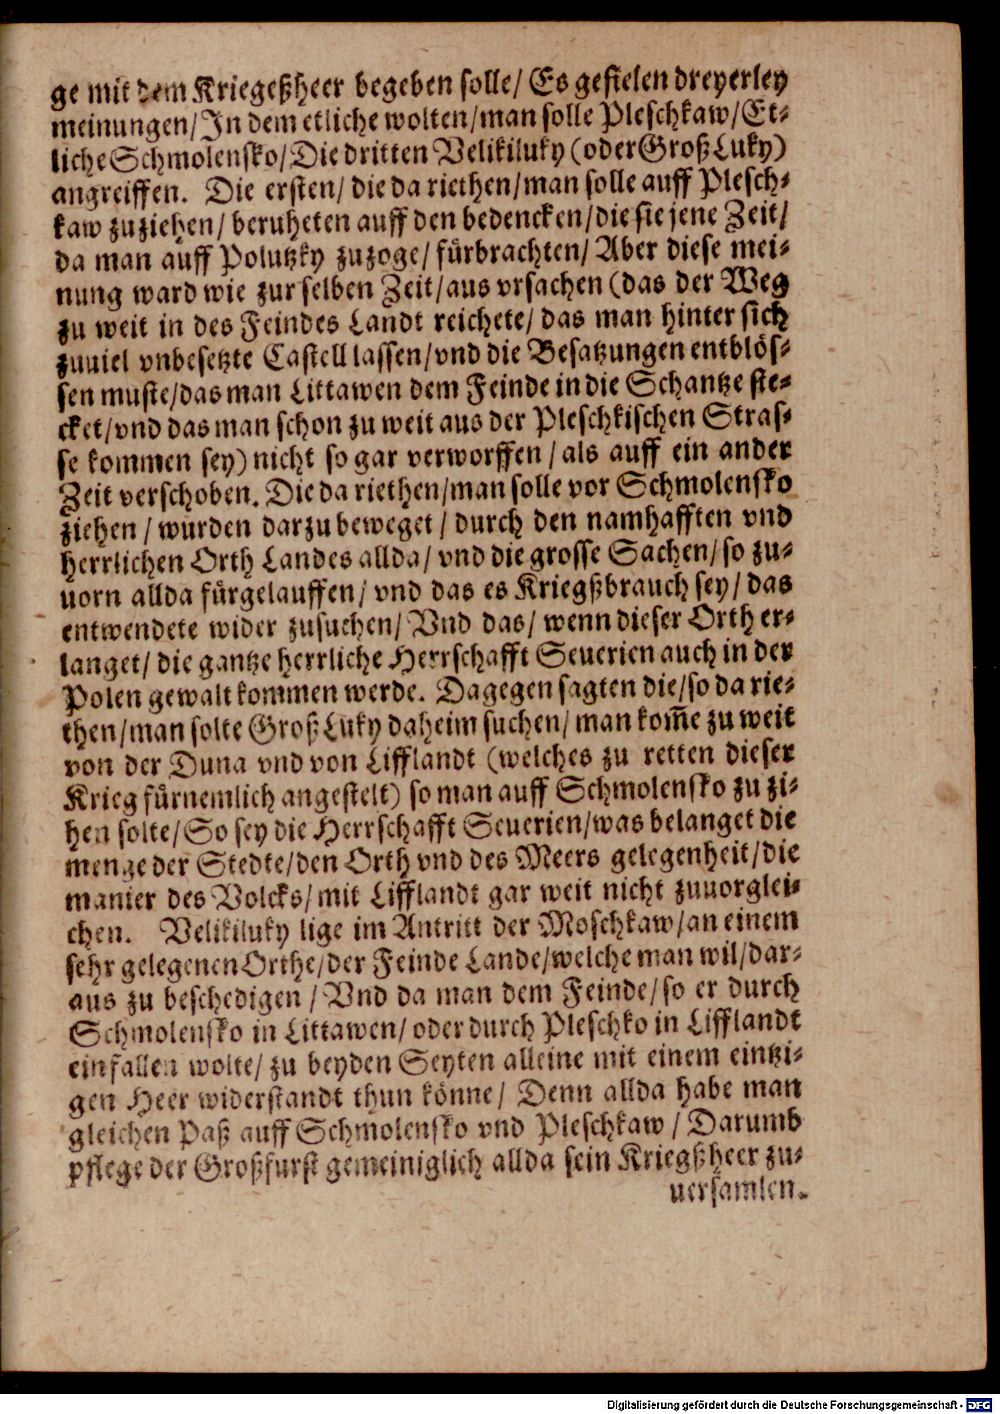 ge mit dem Kriegeßheer begeben solle/ Es gefielen dreyerley
meinungen/ In dem etliche wolten/ man solle Pleschkaw/ Et-
liche Schmolensko/ Die dritten Velikiluky (oder Groß Luky)
angreiffen. Die ersten/ die da riethen/ man solle auff Plesch-
kaw zuziehen/ beruheten auff den bedencken/ die sie jene Zeit/
da man auff Polutzky zuzoge/ fürbrachten/ Aber diese mei-
nung ward wie zur selben Zeit/ aus vrsachen (das der Weg
zu weit in des Feindes Landt reichete/ das man hinter sich
zuuiel vnbesetzte Castell lassen/ vnd die Besatzungen entblös-
sen muste/ das man Littawen dem Feinde in die Schantze ste-
cket/ vnd das man schon zu weit aus der Pleschkischen Stras-
se kommen sey) nicht so gar verworffen/ als auff ein ander
Zeit verschoben. Die da riethen/ man solle vor Schmolensko
ziehen/ wurden darzu beweget/ durch den namhafften vnd
herrlichen Orth Landes allda/ vnd die grosse Sachen/ so zu-
uorn allda fürgelauffen/ vnd das es Kriegßbrauch sey/ das
entwendete wider zusuchen/ Vnd das/ wenn dieser Orth er-
langet/ die gantze herrliche Herrschafft Seuerien auch in der
Polen gewalt kommen werde. Dagegen sagten die/ so da rie-
then/ man solte Groß Luky daheim suchen/ man kom̃e zu weit
von der Duna vnd von Lifflandt (welches zu retten dieser
Krieg fürnemlich angestelt) so man auff Schmolensko zu zi-
hen solte/ So sey die Herrschafft Seuerien/ was belanget die
menge der Stedte/ den Orth vnd des Meers gelegenheit/ die
manier des Volcks/ mit Lifflandt gar weit nicht zuuorglei-
chen. Velikiluky lige im Antritt der Moschkaw/ an einem
sehr gelegenen Orthe/ der Feinde Lande/ welche man wil/ dar-
aus zu beschedigen/ Vnd da man dem Feinde/ so er durch
Schmolensko in Littawen/ oder durch Pleschko in Lifflandt
einfallen wolte/ zu beyden Seyten alleine mit einem eintzi-
gen Heer widerstandt thun könne/ Denn allda habe man
gleichen Paß auff Schmolensko vnd Pleschkaw/ Darumb
pflege der Großfurst gemeiniglich allda sein Kriegßheer zu-
uersamlen.
Digitalisierung gefördert durch die Deutsche Forschungsgemeinschaft - DFG